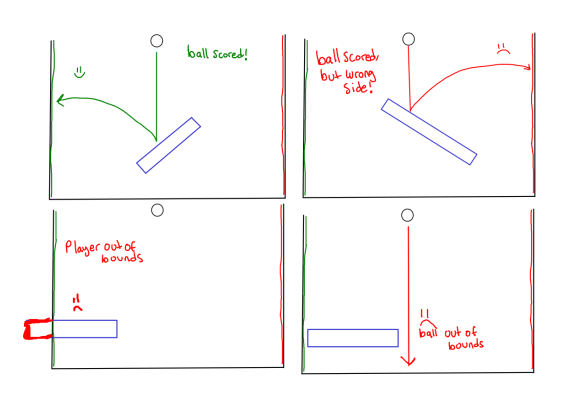 ball scored!
ball scored,
but wrong
side!
Player out of
bounds
ball out of
bounds